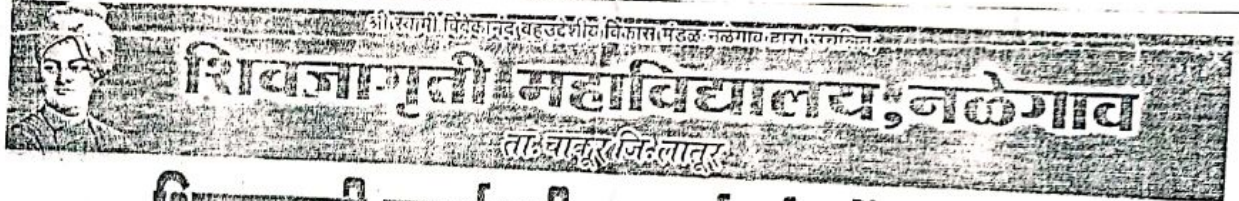 श्री स्वामी विवेकानंद बहुउद्देशीय विकास मंडळ नळेगाव द्वारा
शिवजागृती महाविद्यालय, नळेगाव
ता. चाकूर जि. लातूर